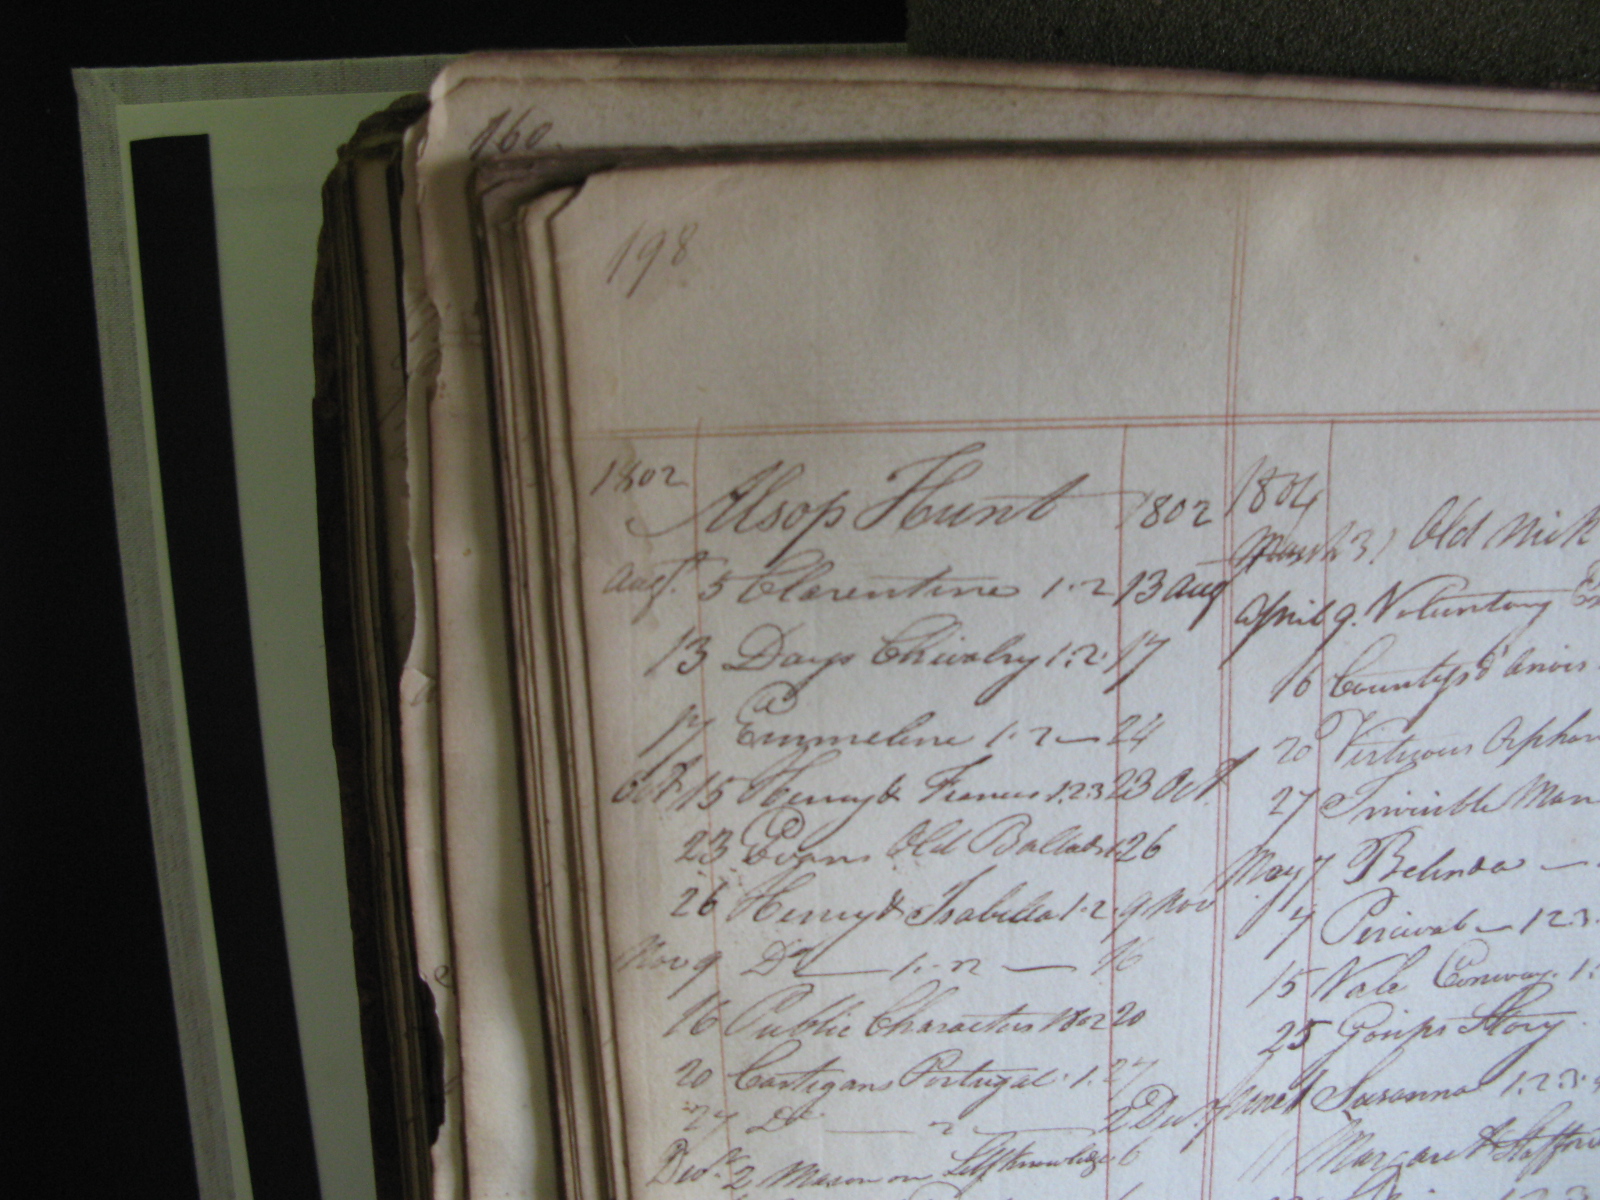 160
198
1802 Alsop Hunt 1802
Augt. 5 Clarentine 1.2 13 Aug
13 Days Chivalry 1.2. 17
17 Emmeline 1.2 — 24
Oct 15 Henry & Frances 1.2.3 23 Oct
23 Evans Old Ballads 1. 26
26 Henry & Isabella 1.2. 9 Nov
Nov 9 Do — 1..2 — 16
16 Public Characters 1802 20
20 Costigans Portugal. 1. 27
27 Do — 2 — 2 Dec.
Decr. 2 Mason on Self knowledge 6
1804
March 31 Old Nick
April 9. Voluntary
16 Countess d'
20 Virtuous Orphan
27 Invisible Man
May 7 Belinda —
Percival — 1 2 3.
15 Vale Conway. 1.
25 Gossips Story.
June 1 Susanna 1.2.3.
11 Margaret